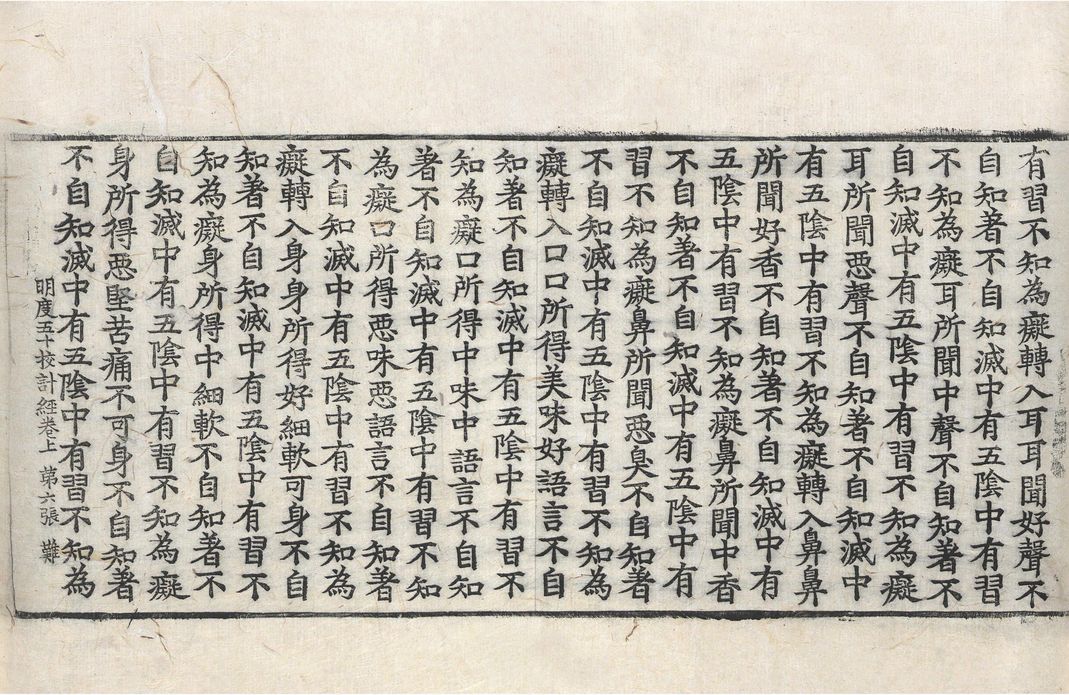 有習不知為癡轉入耳耳聞好聲不
自知著不自知滅中有五陰中有習
不知為癡耳所聞中聲不自知著不
自知滅中有五陰中有習不知為癡
耳所聞惡聲不自知著不自知滅中
有五陰中有習不知為癡轉入鼻鼻
所聞好香不自知著不自知滅中有
五陰中有習不知為癡鼻所聞中香
不自知著不自知滅中有五陰中有
習不知為癡鼻所聞惡臭不自知著
不自知滅中有五陰中有習不知為
癡轉入口口所得美味好語言不自
知著不自知滅中有五陰中有習不
知為癡口所得中味中語言不自知
著不自知滅中有五陰中有習不知
為癡口所得惡味惡語言不自知著
不自知滅中有五陰中有習不知為
癡轉入身身所得好細軟可身不自
知著不自知滅中有五陰中有習不
知為癡身所得中細軟不自知著不
自知滅中有五陰中有習不知為癡
身所得惡堅苦痛不可身不自知著
不自知滅中有五陰中有習不知為
明度五十校計經卷上 第六張 難